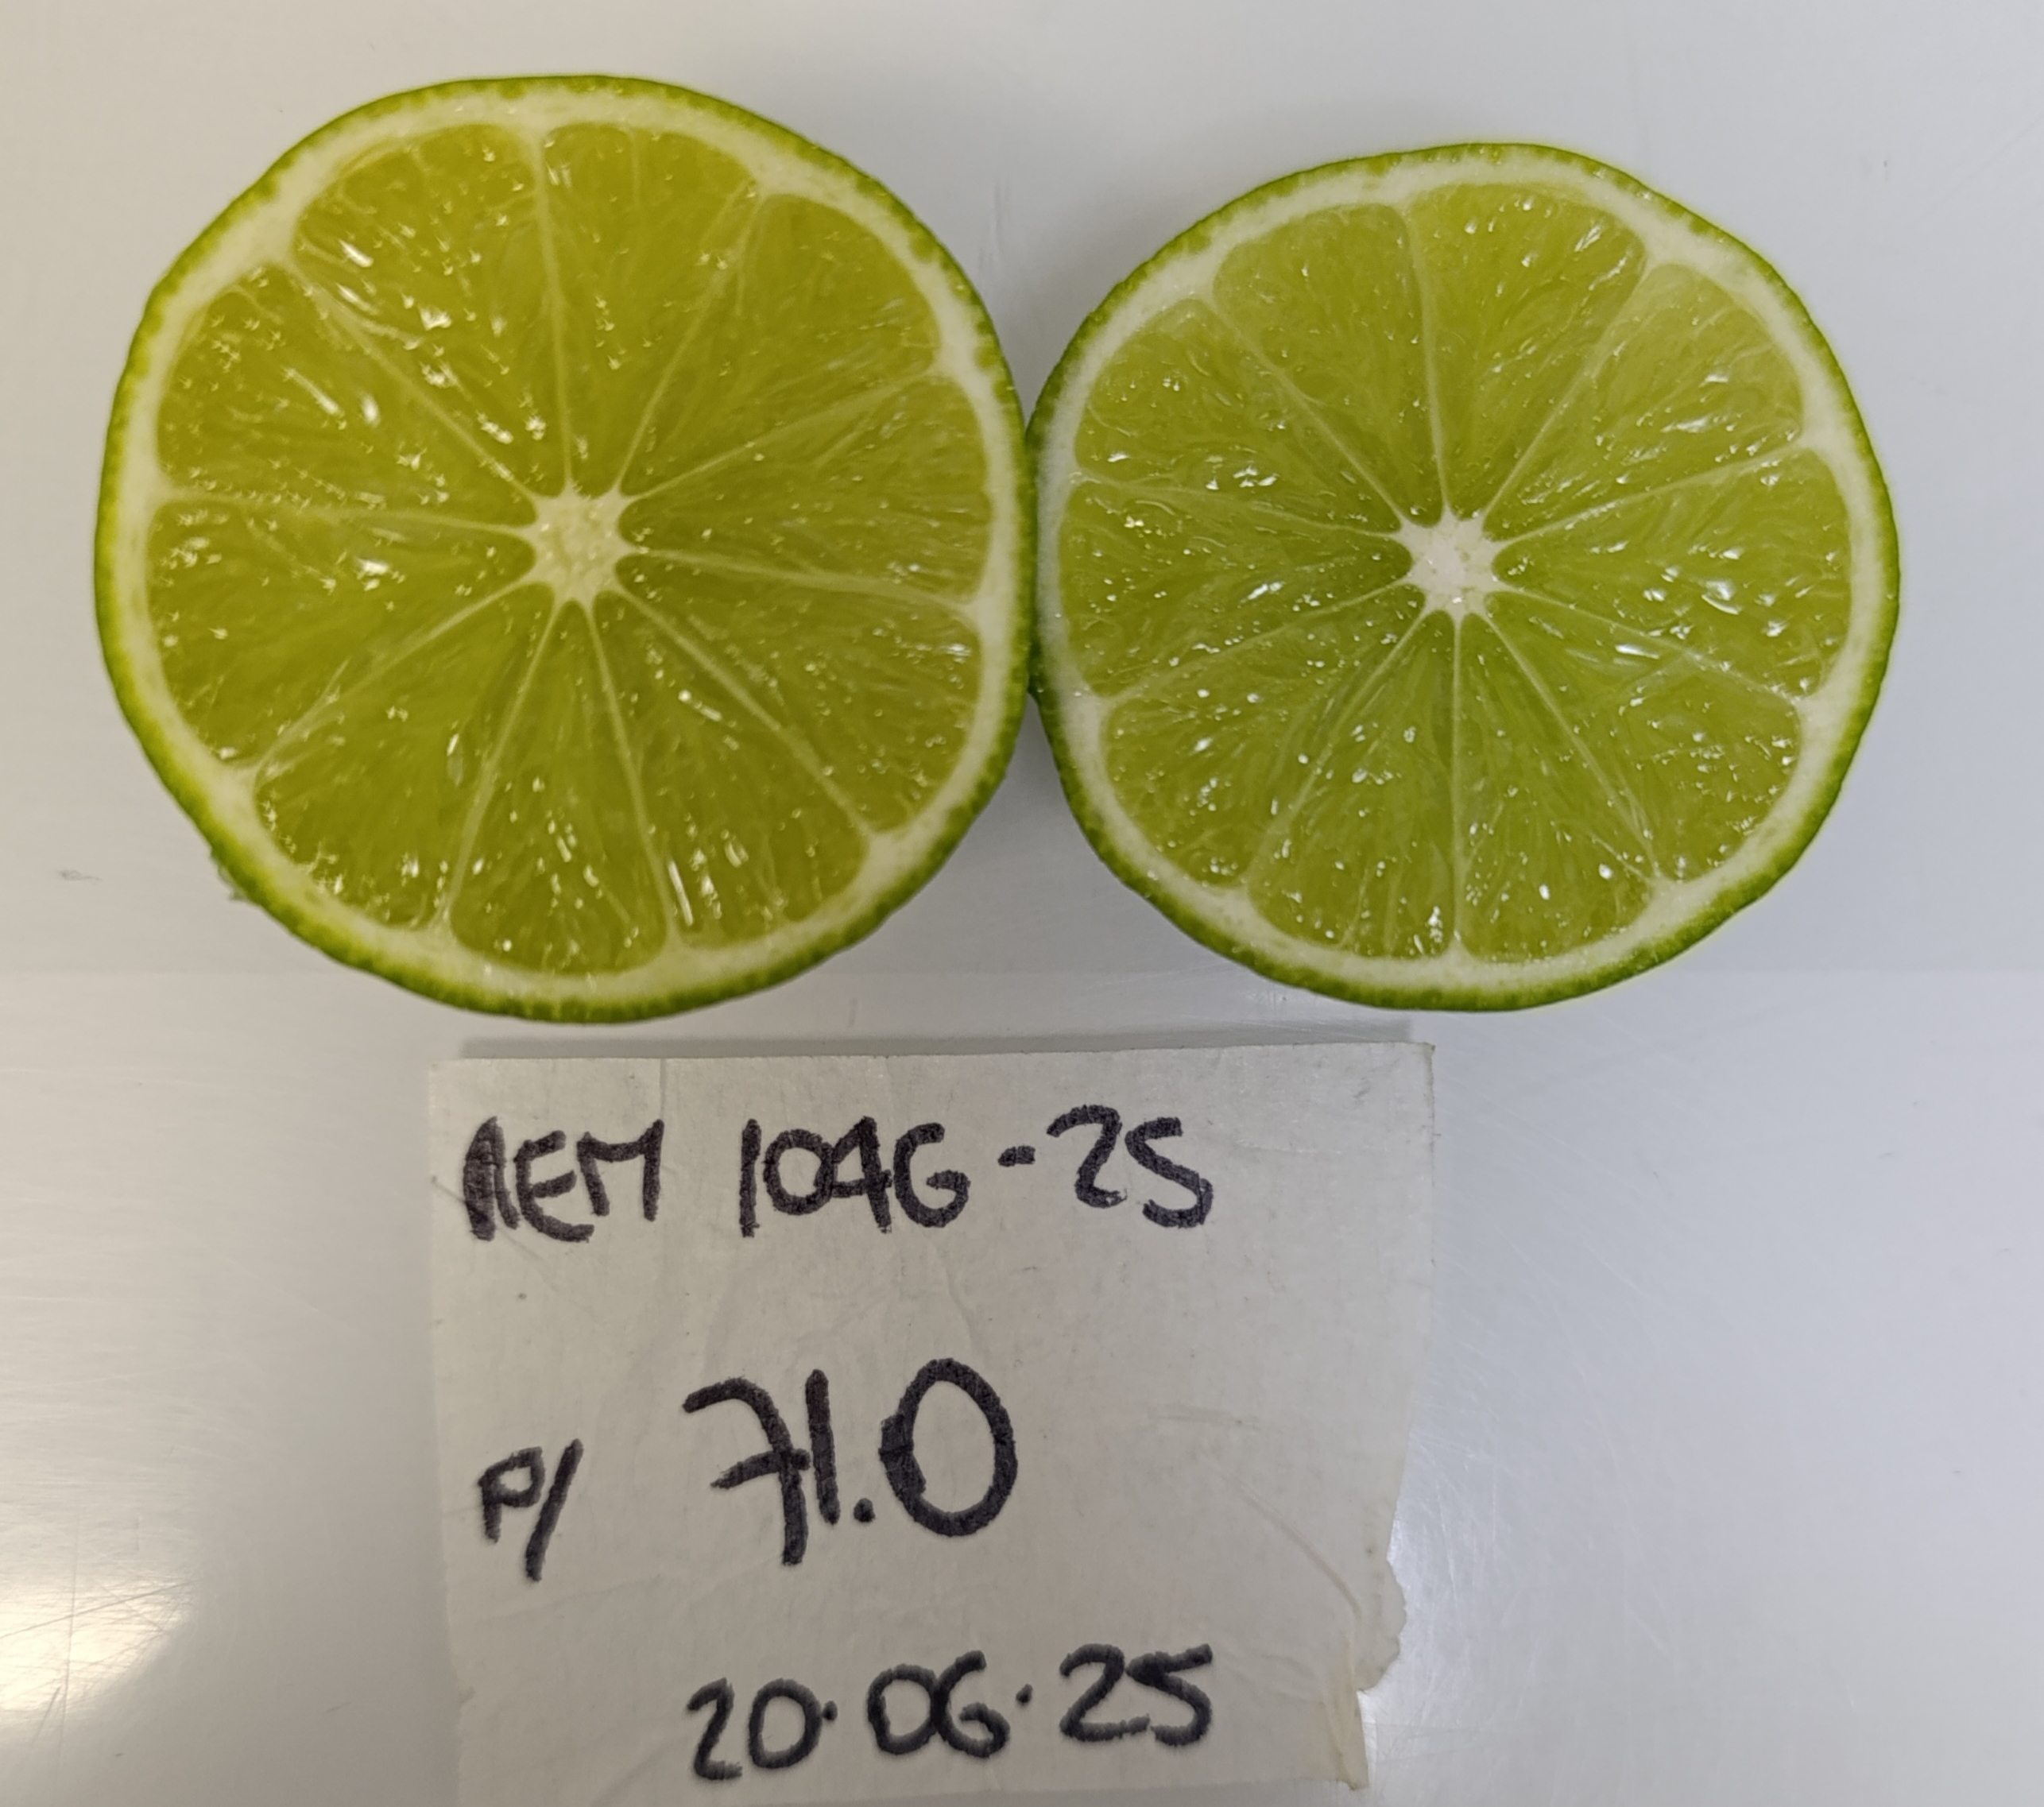 AEM 1046-25
P/ 71.0
20.06.25